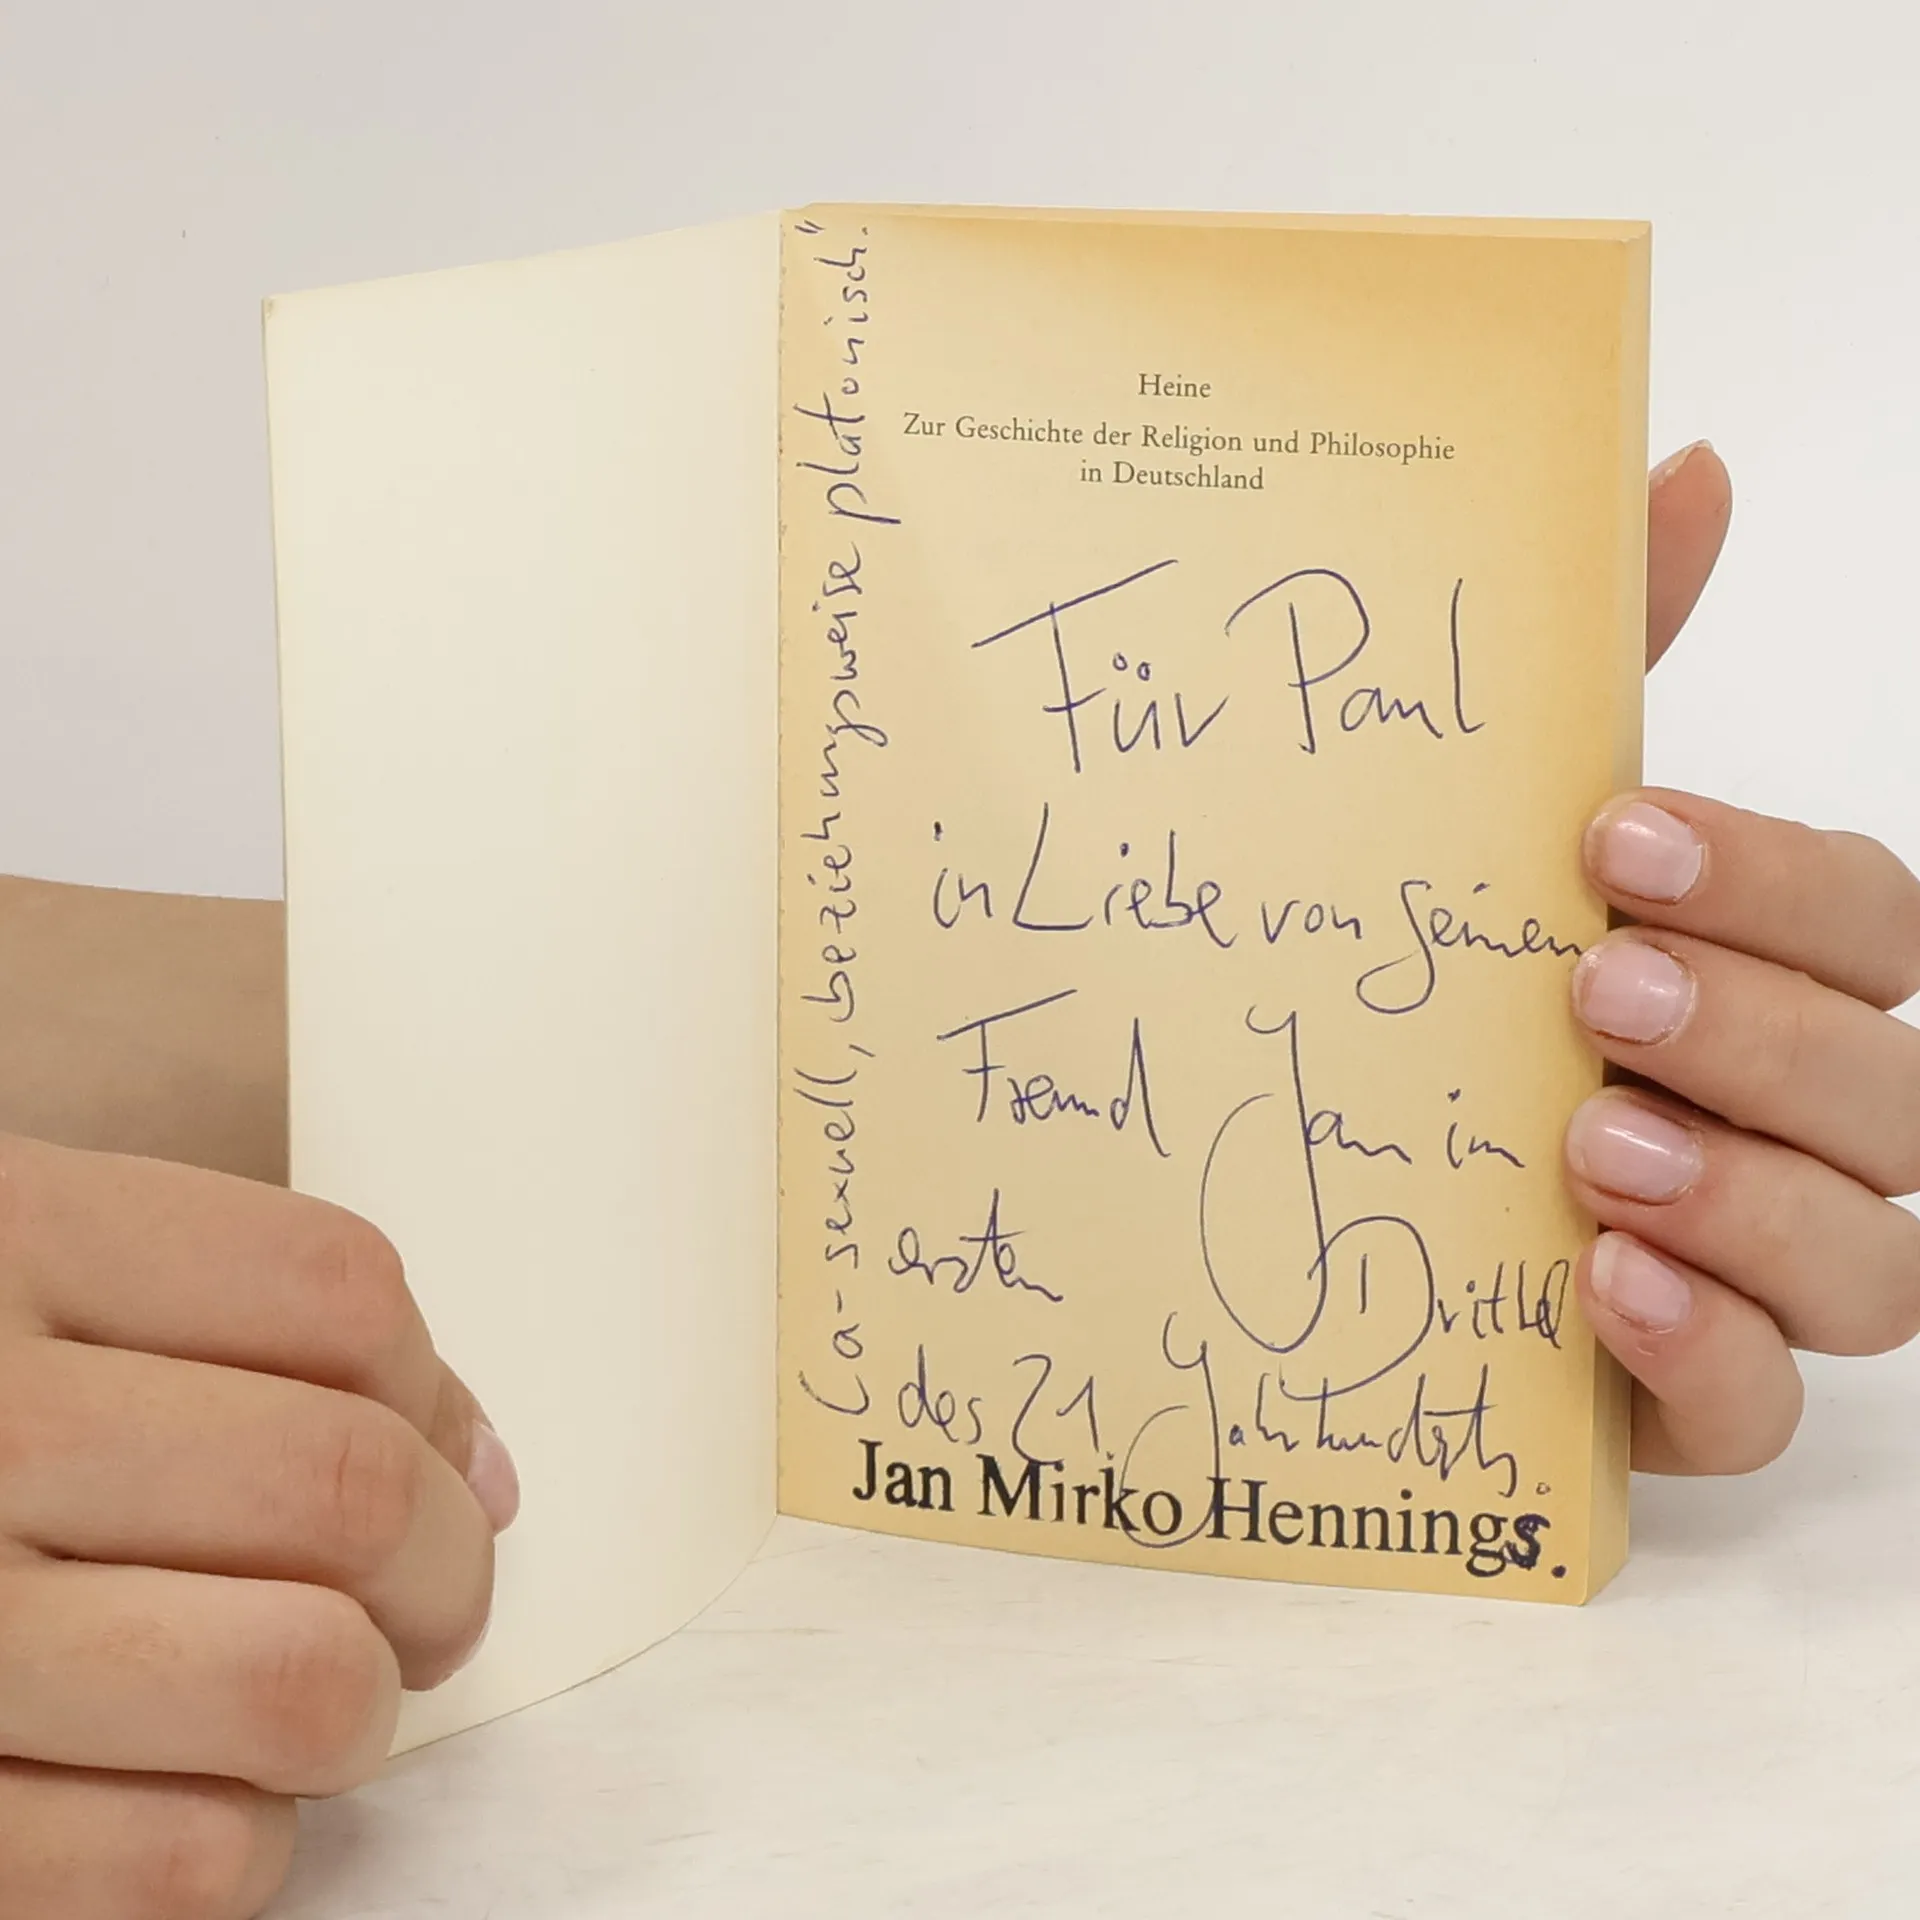 Heine
Zur Geschichte der Religion und Philosophie
in Deutschland
Für Paul
in Liebe von seinem
Freund Jan im
ersten Drittel
des 21. Jahrhunderts.
Jan Mirko Hennings.
(a-sexuell, beziehungsweise platonisch."